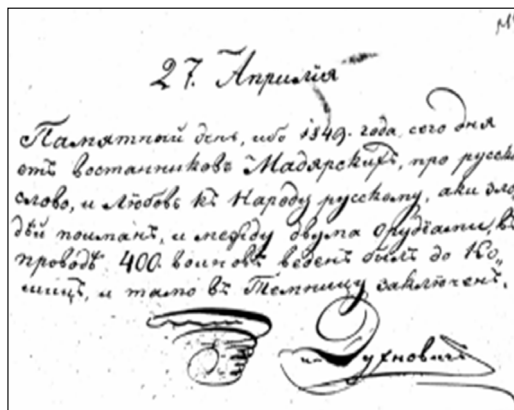 27. Априлія
Памятный день, ибо 1849. года, сего дня
отъ востанниковъ Мадярскихъ, про русско
слово, и любовь къ Народу русскому, аки зло
дѣй поиманъ, и между двума Орудіами, въ
проводѣ 400. воиновъ веденъ былъ до Ко„
шицъ, и тамо въ Темницу заключенъ.
Духновичъ